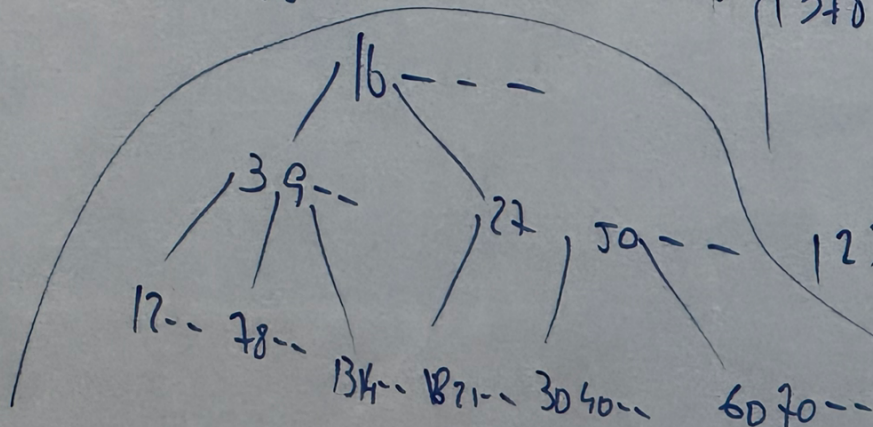 16 - - -
3 9 - -
27 50 - -
12 - -
78 - -
1314 - - 1821 - - 3040 - - 6070 - -